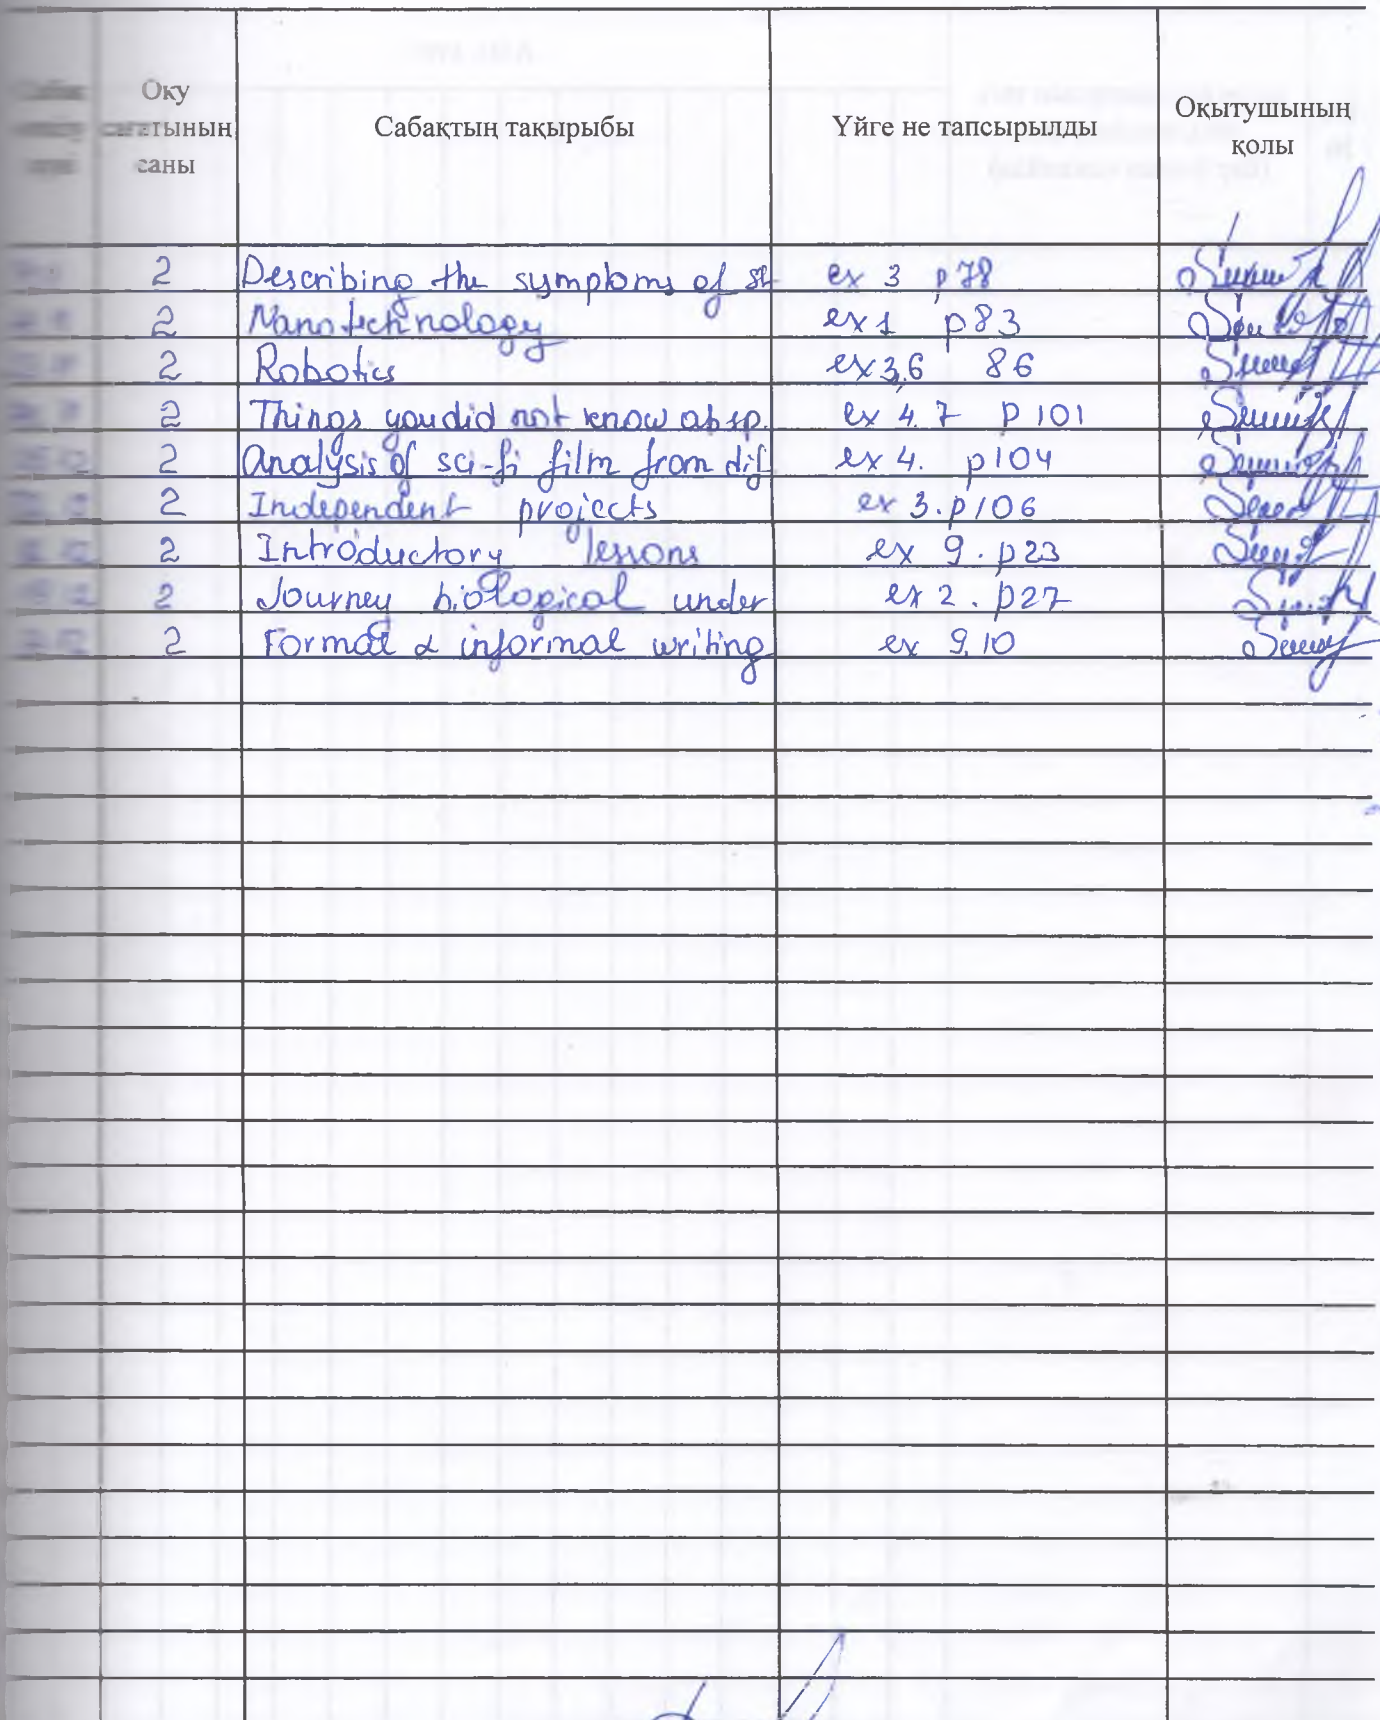 Оқу сағатының саны
Сабақтың тақырыбы
Үйге не тапсырылды
Оқытушының қолы
2 Describing the symptoms of st- ex 3 p78
2 Nanotechnology ex 1 p83
2 Robotics ex 3,6 86
2 Things you did not know ab sp. ex 4. 7 p 101
2 Analysis of sci-fi film from dif ex 4. p104
2 Independent projects ex 3. p106
2 Introductory lessons ex 9. p23
2 Journey biological under ex 2. p27
2 Formal & informal writing ex 9, 10